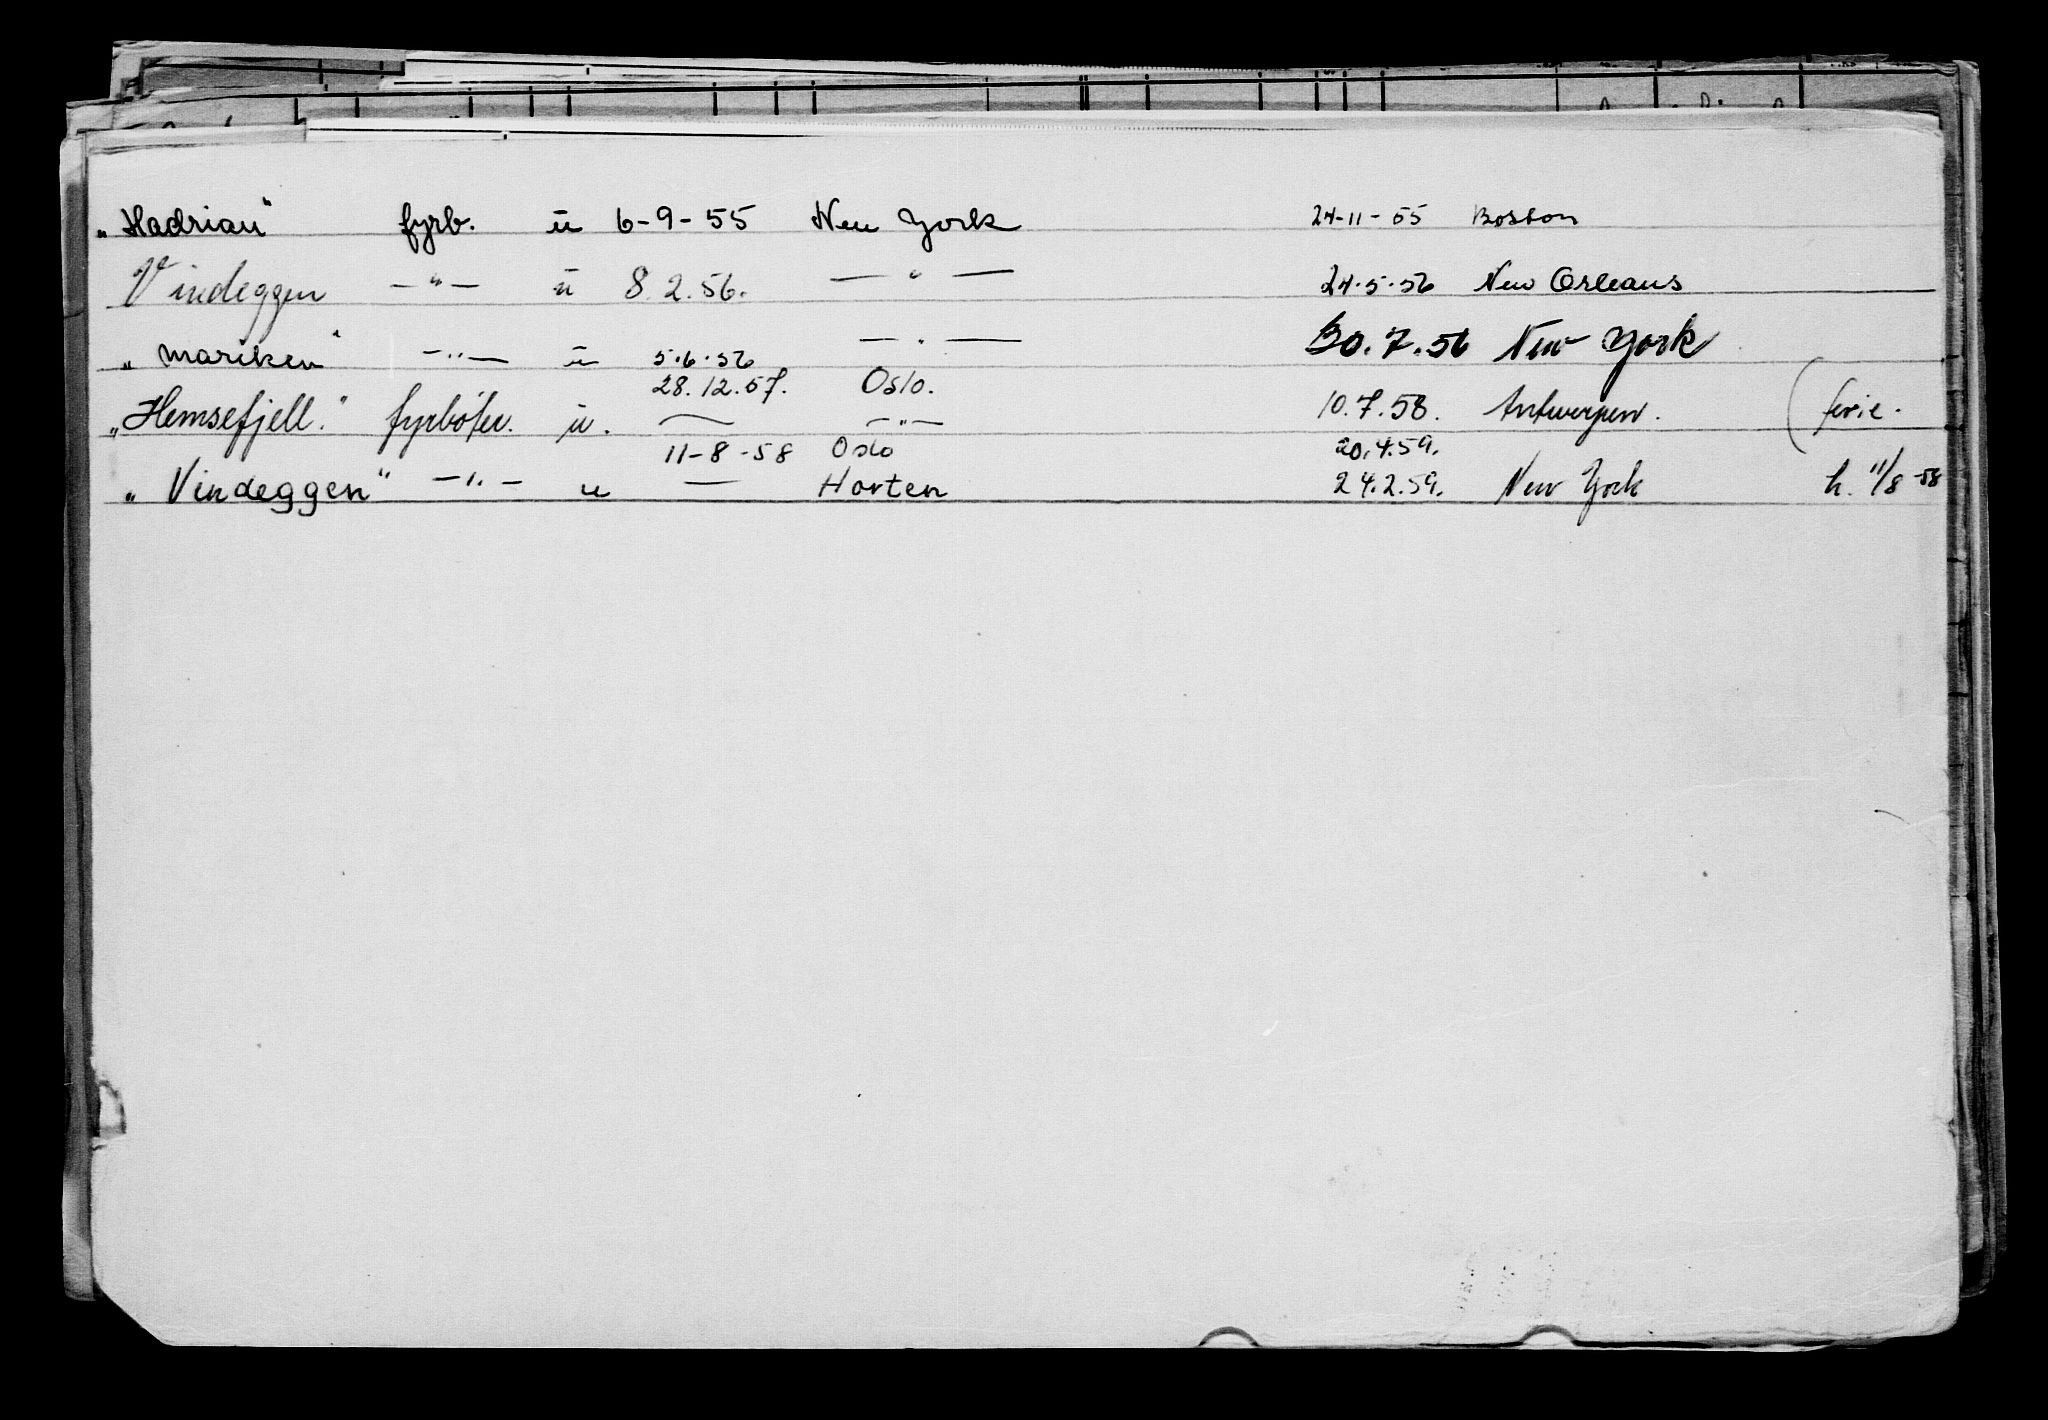 „Hadrian" fyrb. ū 6-9-55 New York 24-11-55 Boston
Vindeggen —"— ū 8.2.56. —"— 24.5.56 New Orleans
„Mariken" —"— ū 5.6.56 —"— 30.7.56 New York
28.12.57. Oslo.
„Hemsefjell." fyrbøter. ū. — —"— 10.7.58. Antwerpen. (ferie.
11-8-58 Oslo 20.4.59.
„Vindeggen" —"— u — Horten 24.2.59. New York h. 11/8-58